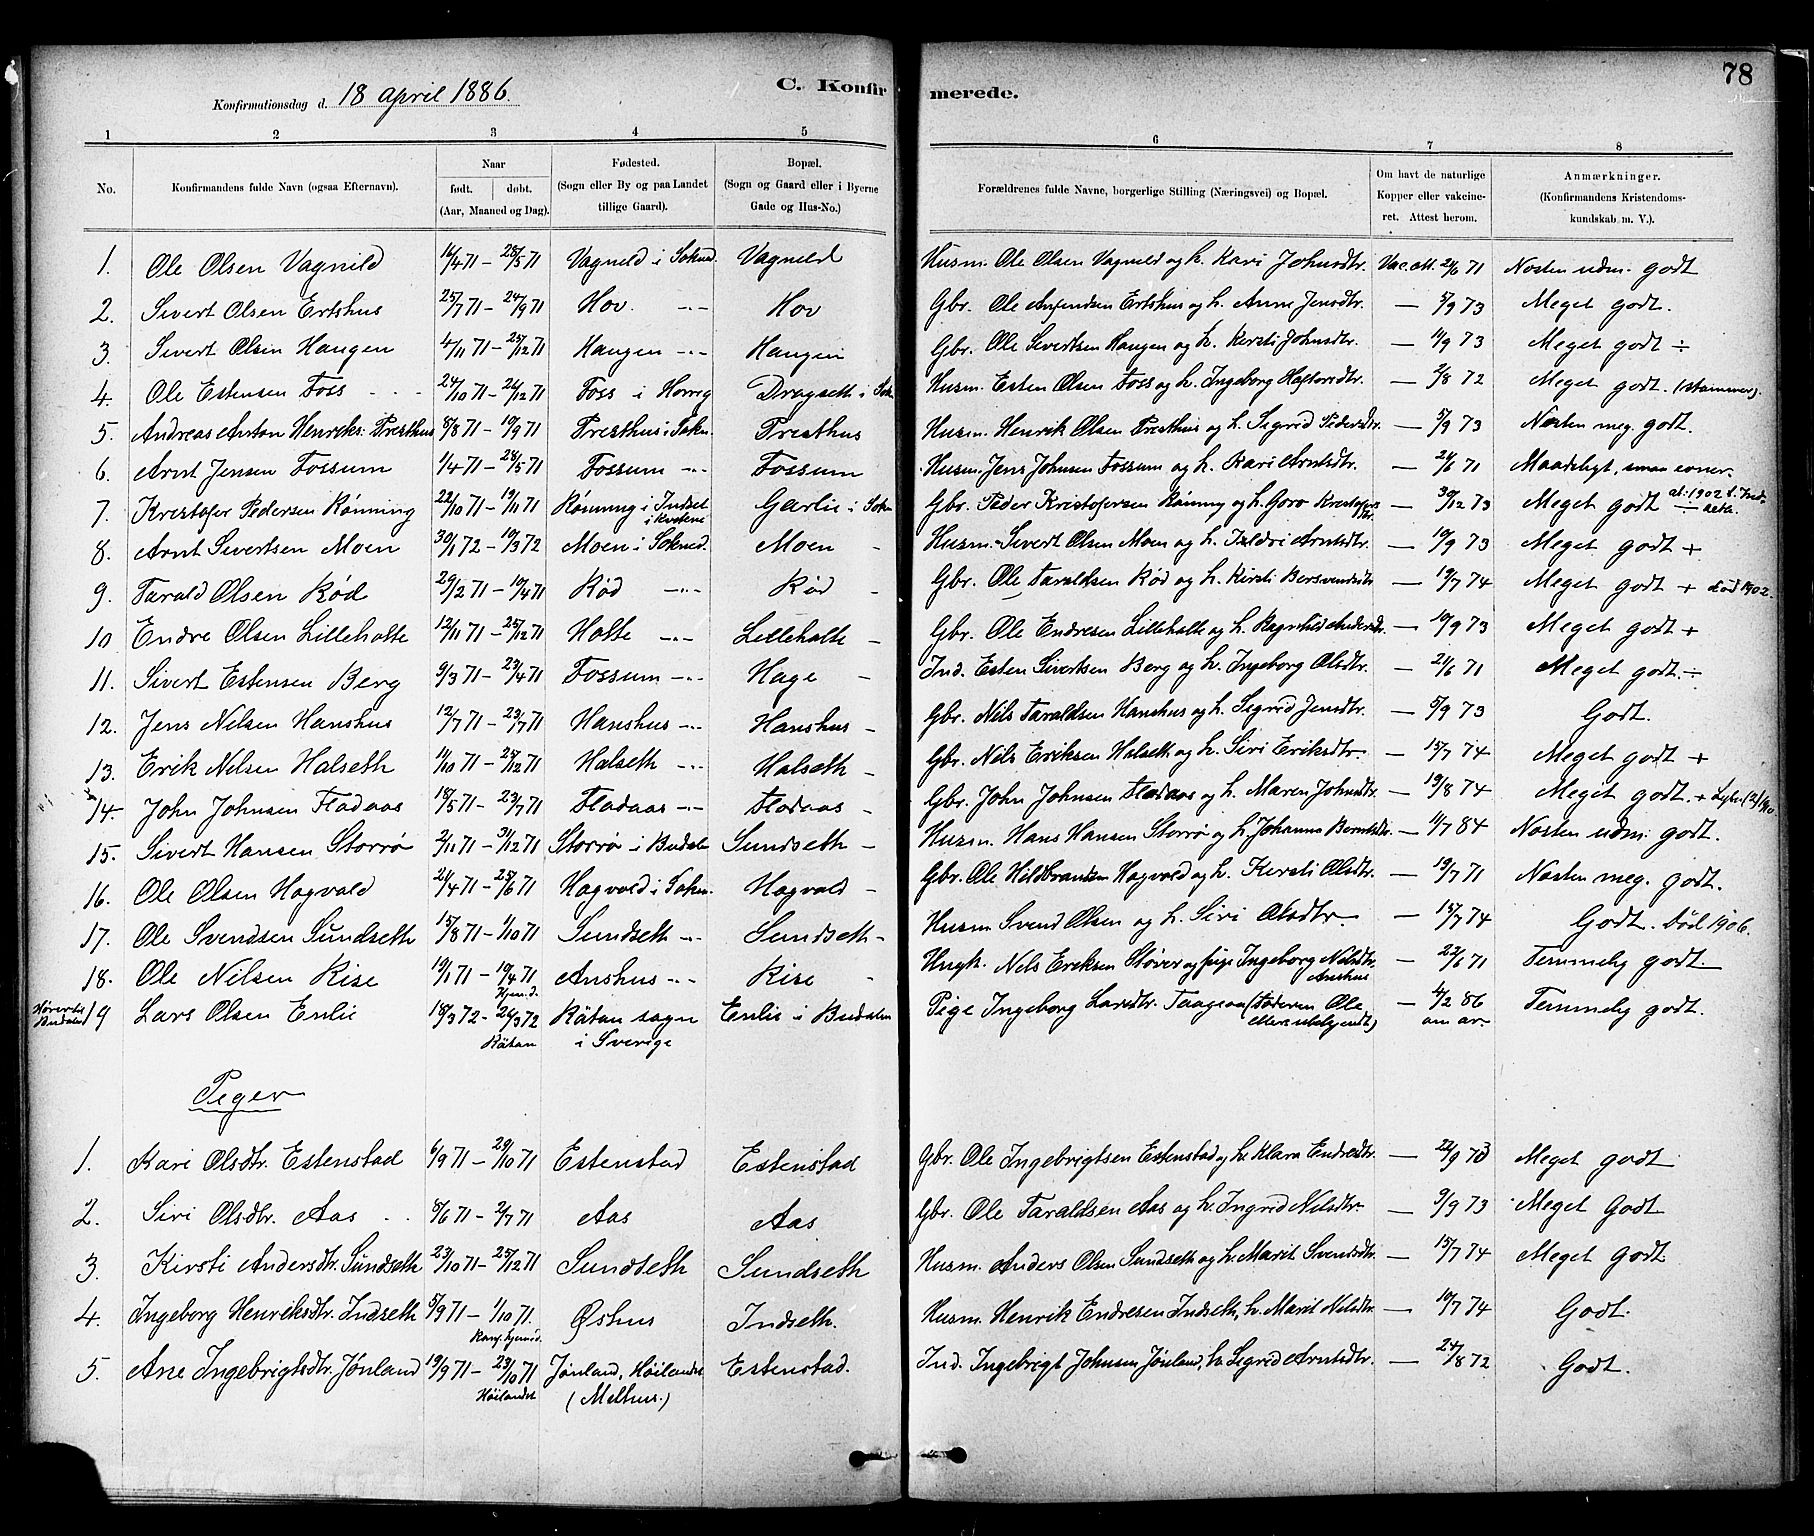 78
Konfirmationsdag d. 18 April 1886.
C. Konfirmerede.
1 2 3 4 5 6 7 8
No. Konfirmandens fulde Navn (ogsaa Efternavn). Naar født. døbt. (Aar, Maaned og Dag). Fødested. (Sogn eller By og paa Landet tillige Gaard). Bopæl. (Sogn og Gaard eller i Byerne Gade og Hus-No.) Forældrenes fulde Navne, borgerlige Stilling (Næringsvei) og Bopæl. Om havt de naturlige Kopper eller vakcineret. Attest herom. Anmærkninger. (Konfirmandens Kristendomskundskab m. V.).
1. Ole Olsen Vagnild 16/4 71 – 28/5 71 Vagnild i Soknd. Vagnild Husm. Ole Olsen Vagnild og h. Kari Johnsdtr. Vac. att. 21/6 71 Næsten udm. godt
2. Sivert Olsen Ertshus 25/7 71 – 24/9 71 Hov -"- Hov Gbr. Ole Ertshus og h. Anne Jensdtr. — 5/9 73 Meget godt.
3. Sivert Olsen Haugen 4/11 71 – 25/12 71 Haugen -"- Haugen Gbr. Ole Sivertsen Haugen og h. Kirsti Johnsdtr. — 11/9 73 Meget godt ÷
4. Ole Estensen Foss 24/10 71 – 26/12 71 Foss i Horrig Dragseth i Sokn Husm. Esten Olsen Foss og h. Ingeborg Haftorsdtr. — 2/8 72 Meget godt. (stammer).
5. Andreas Anton Henriks. Presthus 8/8 71 – 10/9 71 Presthus i Sokn. Presthus Husm. Henrik Olsen Presthus og h. Sigrid Pedersdtr. — 5/9 73 Næsten meg. godt.
6. Arnt Jensen Fossum 1/4 71 – 28/5 71 Fossum -"- Fossum Husm. Jens Johnsen Fossum og h. Kari Arntsdtr. — 21/6 71 Maadeligt, smaa evner.
7. Kristofer Pedersen Rønning 22/10 71 – 19/11 71 Rønning i Indset i Kvikne Garlie i Sokn Gbr. Peder Kristofersen Rønning og h. Goro Kristofersdtr. — 30/12 73 Meget godt ÷
8. Arnt Sivertsen Moen 30/1 72 – 10/3 72 Moen i Soknd. Moen - Husm. Sivert Olsen Moen og h. Ildri Arntsdtr. — 10/9 73 Meget godt +
9. Tarald Olsen Rød 29/2 71 – 10/4 71 Rød -"- Rød - Gbr. Ole Taraldsen Rød og h. Kirsti Bersvendsdtr — 19/7 74 Meget godt + død 1902.
10. Endre Olsen Lilleholte 12/11 71 – 25/12 71 Holte -"- Lilleholte - Gbr. Ole Endresen Lilleholte og h. Ragnhild Andersdtr. — 10/9 73 Meget godt +
11. Sivert Estensen Berg 9/3 71 – 23/4 71 Fossum -"- Hage - Ind. Esten Sivertsen Berg og h. Ingeborg Olsdtr. — 21/6 71 Meget godt. ÷
12. Jens Nilsen Hanshus 12/7 71 – 23/7 71 Hanshus -"- Hanshus - Gbr. Nils Taraldsen Hanshus og h. Sigrid Jensdtr. — 5/9 73 Godt.
13. Erik Nilsen Halseth 11/10 71 – 25/12 71 Halseth -"- Halseth - Gbr. Nils Eriksen Halseth og h. Siri Eriksdtr. — 15/7 74 Meget godt +
14. John Johnsen Fladaas 18/5 71 – 23/7 71 Fladaas -"- Fladaas - Gbr. John Johnsen Fladaas og h. Maren Johnsdtr. — 19/8 74 Meget godt. +
15. Sivert Hansen Storrø 2/11 71 – 31/12 71 Storrø i Budalen Sundseth - Husm. Hans Hansen Storrø og h. Johanna Berntsdtr. — 11/7 84 Næsten udm. godt.
16. Ole Olsen Hagvold 21/4 71 – 25/6 71 Hagvold i Sokn. Hagvold - Gbr. Ole Hildbrandsen Hagvold og h. Kirsti Olsdtr. — 19/7 71 Næsten meg. godt.
17. Ole Svendsen Sundseth 15/8 71 – 1/10 71 Sundseth -"- Sundseth - Husm Svend Olsen og h. Siri Olsdtr. — 15/7 74 Godt. død 1906.
18. Ole Nilsen Rise 19/1 71 – 10/4 71 Hjem.d. Anshus -"- Rise - Ungk. Nils Eriksen Støver og pige Ingeborg Nilsdtr. Anshus — 22/6 71 Temmelig godt.
19 Lars Olsen Enlie 18/3 72 – 24/3 72 Rätan Rätan sogn i Sverige Enlie i Budalen Pige Ingeborg Larsdtr. (Faderen Ole ellers ubekjendt) — 4/2 86 om ar. Temmelig godt.
Piger
1. Kari Olsdtr. Estenstad 6/9 71 – 29/10 71 Estenstad Estenstad Gbr. Ole Ingebrigtsen Estenstad og h. Klara Endresdtr. — 22/9 73 Meget godt
2. Siri Olsdtr. Aas 8/6 71 – 2/7 71 Aas Aas Gbr. Ole Taraldsen Aas og h. Ingrid Nilsdtr. — 9/9 73 Meget Godt
3. Kirsti Andersdtr. Sundseth 23/10 71 – 25/12 71 Sundseth Sundseth Husm. Anders Olsen Sundseth og h. Marit Svendsdtr. — 15/7 74 Meget Godt.
4. Ingeborg Henriksdtr. Indseth 5/9 71 – 1/10 71. Øshus Indseth. Husm. Henrik Endresen Indseth, h. Marit Nilsdtr. — 10/7 74 Godt.
5. Ane Ingebrigtsdtr. Jønland 19/9 71 – 23/10 71 Høilandet Jønland, Høilandet (Melhus.) Estenstad. Ind. Ingebrigt Johnsen Jønland, h. Sigrid Arntsdtr. — 24/8 72 Godt.